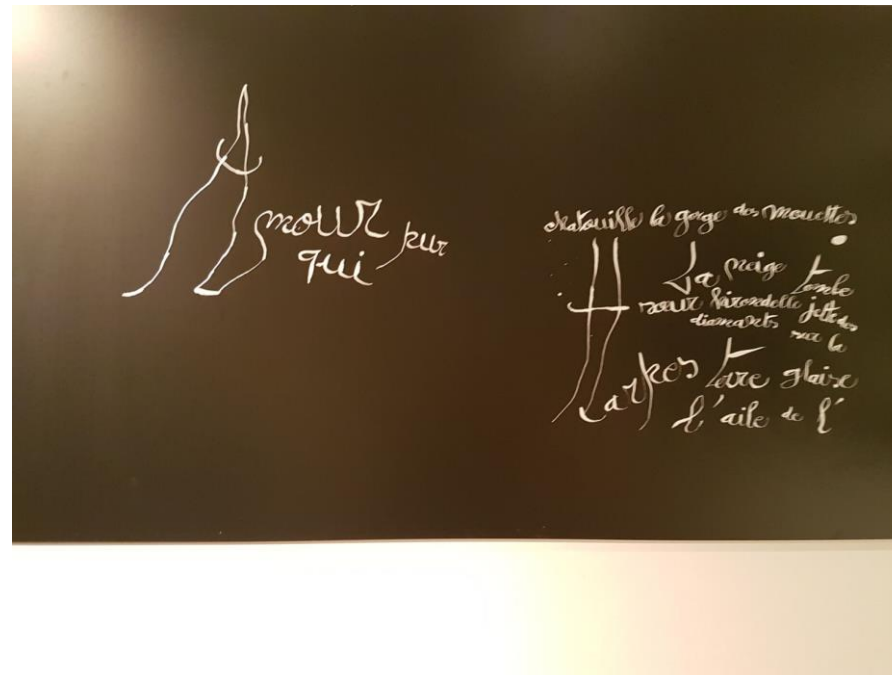 Amour pur
qui
chatouille la gorge des mouettes
La neige tombe
sœur hirondelle jette des
diamants sur la
Harpes terre glaise
l'aile de l'